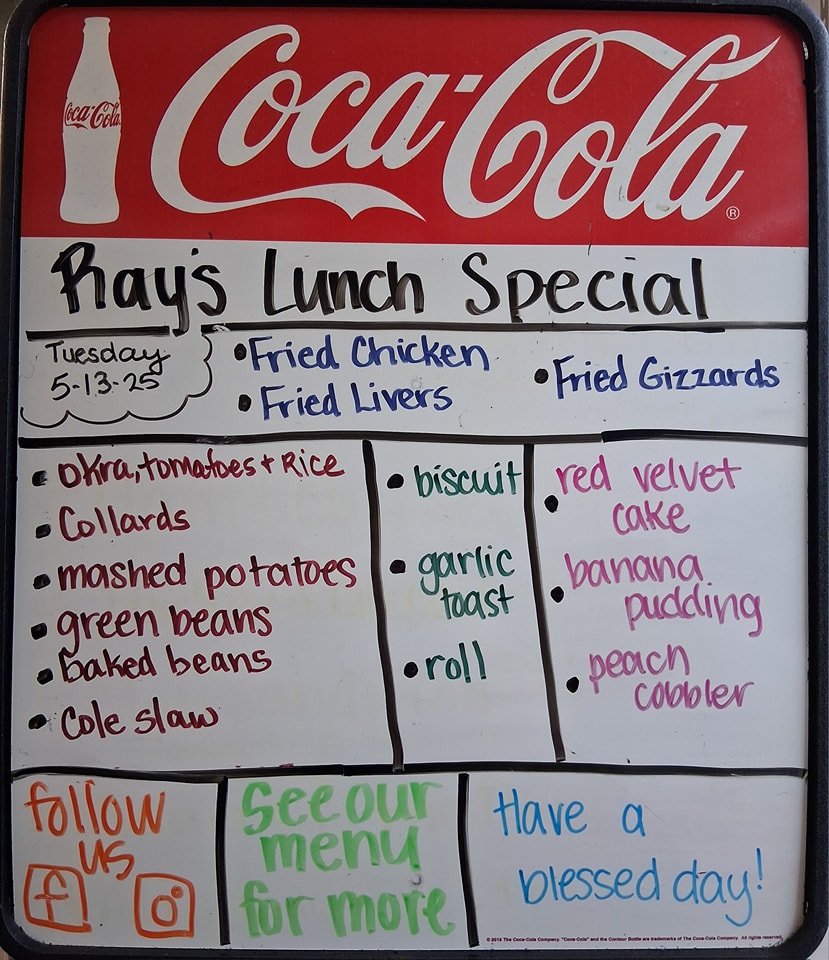 Coca-Cola
Coca-Cola®
Ray's Lunch Special
Tuesday
5-13-25
• Fried Chicken
• Fried Livers
• Fried Gizzards
• Okra, tomatoes + Rice
• Collards
• mashed potatoes
• green beans
• baked beans
• Cole slaw
• biscuit
• garlic
toast
• roll
• red velvet
cake
• banana
pudding
• peach
cobbler
follow
us
f
See our
menu
for more
Have a
blessed day!
© 2018 The Coca-Cola Company. "Coca-Cola" and the Contour Bottle are trademarks of The Coca-Cola Company. All rights reserved.